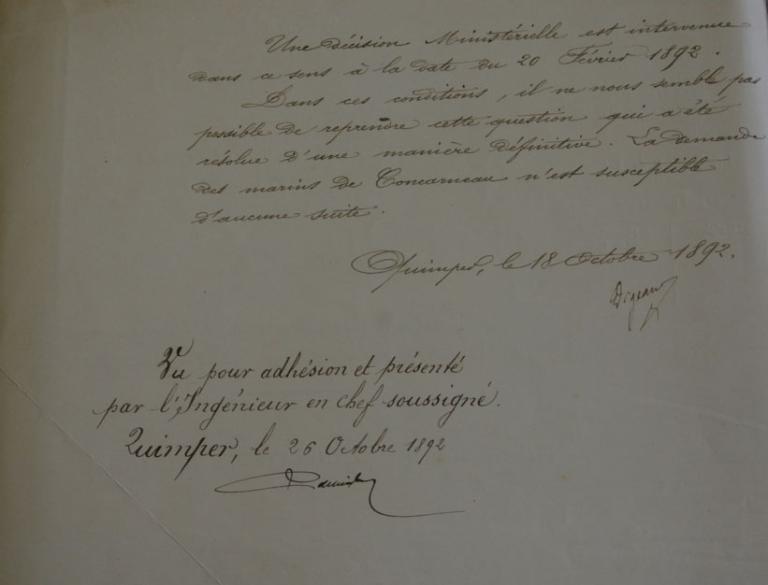 Une décision Ministérielle est intervenue
dans ce sens à la date du 20 Février 1892.
Dans ces conditions, il ne nous semble pas
possible de reprendre cette question qui a été
résolue d'une manière définitive. La demande
des marins de Concarneau n'est susceptible
d'aucune suite.
Quimper, le 18 Octobre 1892.
Vu pour adhésion et présenté
par l'Ingénieur en chef soussigné.
Quimper, le 26 Octobre 1892